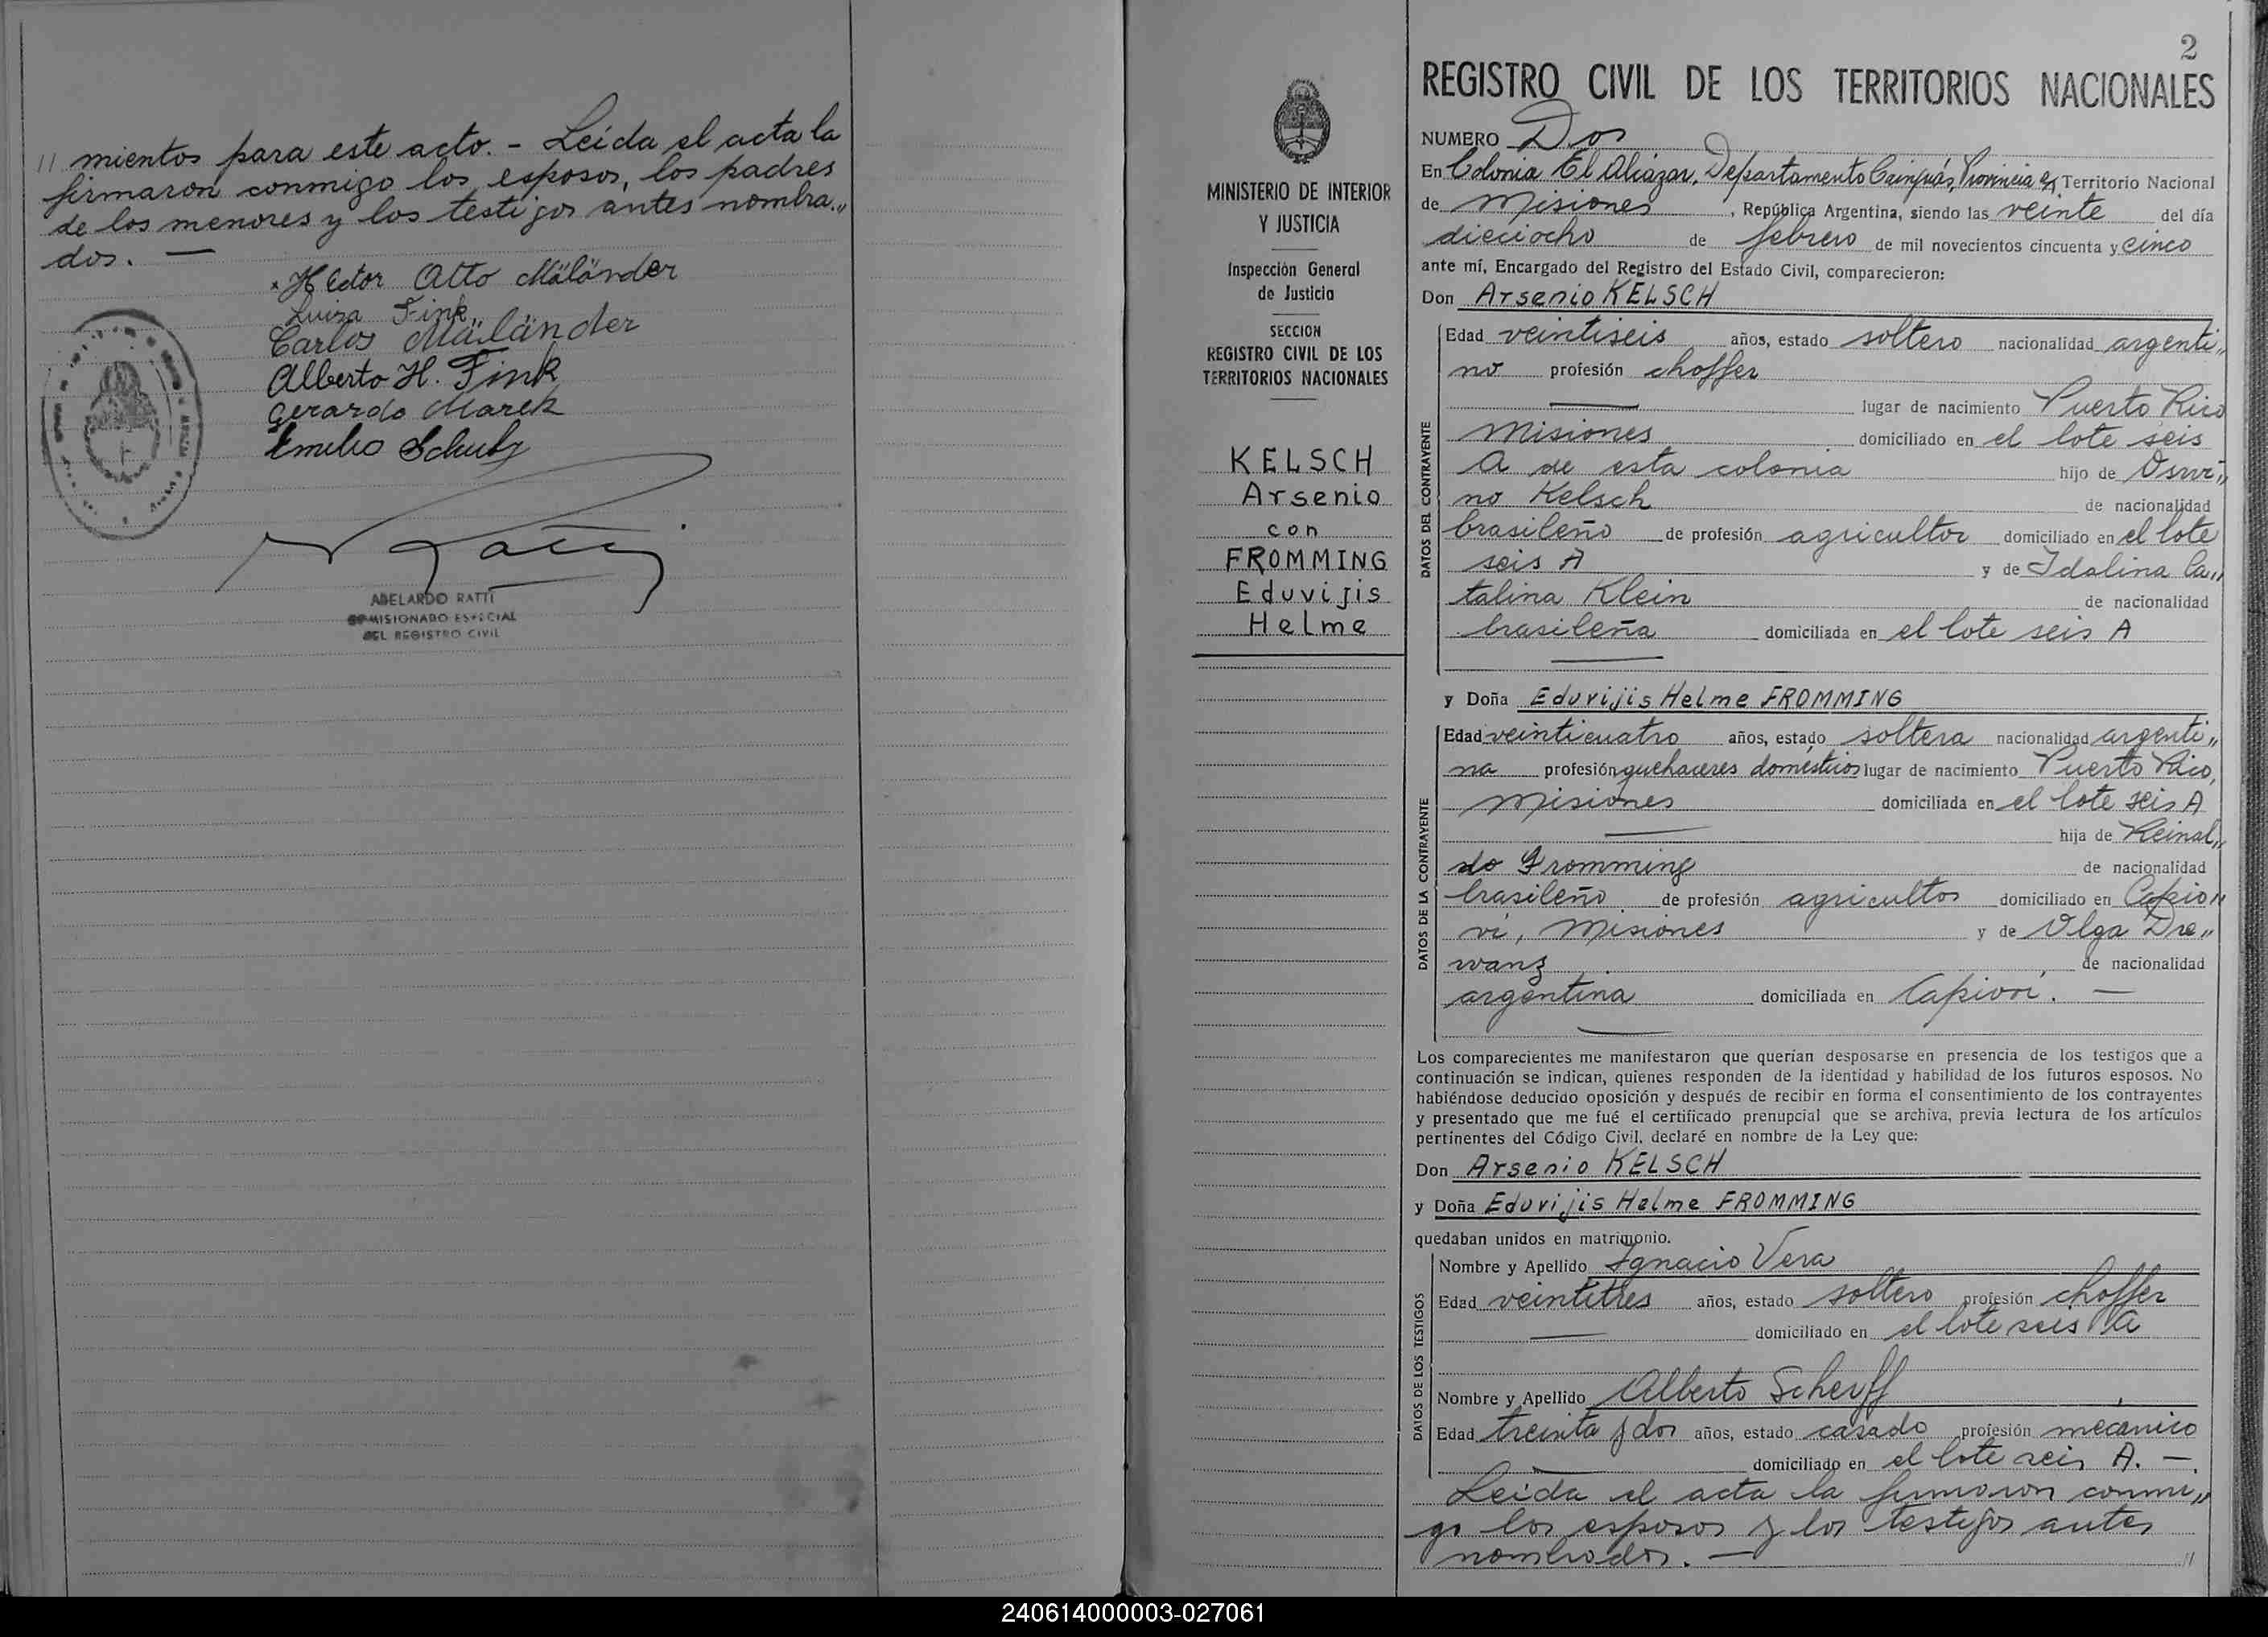 // mientos para este acto. - Leída el acta la
firmaron conmigo los esposos, los padres
de los menores y los testigos antes nombra„
dos. —
Hector Otto Mäländer
Luiza Fink
Carlos Mäländer
Alberto H. Fink
Gerardo Marek
Emilio Schulz
Ratti
ABELARDO RATTI
COMISIONADO ESPECIAL
DEL REGISTRO CIVIL
MINISTERIO DE INTERIOR
Y JUSTICIA
Inspección General
de Justicia
SECCION
REGISTRO CIVIL DE LOS
TERRITORIOS NACIONALES
KELSCH
Arsenio
con
FROMMING
Eduvijis
Helme
2
REGISTRO CIVIL DE LOS TERRITORIOS NACIONALES
NUMERO Dos
En Colonia El Alcázar, Departamento Cainguás, Provincia Territorio Nacional
de Misiones, República Argentina, siendo las veinte del día
dieciocho de febrero de mil novecientos cincuenta y cinco
ante mí, Encargado del Registro del Estado Civil, comparecieron:
Don Arsenio KELSCH
DATOS DEL CONTRAYENTE
Edad veintiseis años, estado soltero nacionalidad argenti„
no profesión choffer
— lugar de nacimiento Puerto Rico
Misiones domiciliado en el lote seis
A de esta colonia hijo de Osvi„
no Kelsch de nacionalidad
brasileño de profesión agricultor domiciliado en el lote
seis A y de Idalina Ca„
talina Klein de nacionalidad
brasileña domiciliada en el lote seis A
—
y Doña Eduvijis Helme FROMMING
DATOS DE LA CONTRAYENTE
Edad veinticuatro años, estado soltera nacionalidad argenti„
na profesión quehaceres domésticos lugar de nacimiento Puerto Rico,
Misiones domiciliada en el lote seis A
— hija de Reinal„
do Fromming de nacionalidad
brasileño de profesión agricultor domiciliado en Capio„
ví, Misiones y de Olga Dre„
wanz de nacionalidad
argentina domiciliada en Capioví. —
—
Los comparecientes me manifestaron que querían desposarse en presencia de los testigos que a
continuación se indican, quienes responden de la identidad y habilidad de los futuros esposos. No
habiéndose deducido oposición y después de recibir en forma el consentimiento de los contrayentes
y presentado que me fué el certificado prenupcial que se archiva, previa lectura de los artículos
pertinentes del Código Civil, declaré en nombre de la Ley que:
Don Arsenio KELSCH
y Doña Eduvijis Helme FROMMING
quedaban unidos en matrimonio.
DATOS DE LOS TESTIGOS
Nombre y Apellido Ignacio Vera
Edad veintitres años, estado soltero profesión choffer
— domiciliado en el lote seis A
Nombre y Apellido Alberto Scherff
Edad treinta y dos años, estado casado profesión mecánico
— domiciliado en el lote seis A. —
Leída el acta la firmaron conmi„
go los esposos y los testigos antes
nombrados. — //
240614000003-027061